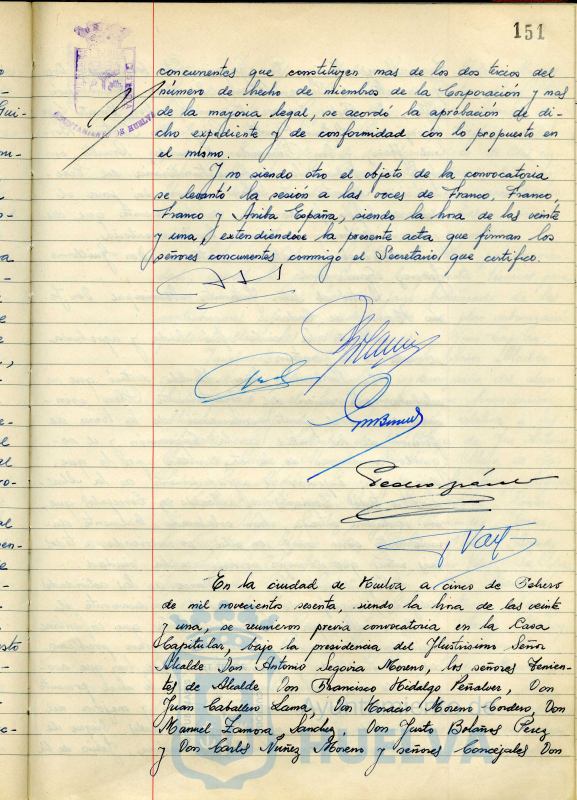 151
concurrentes que constituyen mas de los dos tercios del
número de hecho de miembros de la Corporación y mas
de la mayoria legal, se acordó la aprobación de di-
cho expediente y de conformidad con lo propuesto en
el mismo.
Y no siendo otro el objeto de la convocatoria
se levantó la sesión a las voces de Franco, Franco,
Franco y Arriba España, siendo la hora de las veinte
y una, extendiendose la presente acta, que firman los
señores concurrentes conmigo el Secretario que certifico.
En la ciudad de Huelva a cinco de Febrero
de mil novecientos sesenta, siendo la hora de las veinte
y una, se reunieron previa convocatoria en la Casa
Capitular, bajo la presidencia del Ilustrisimo Señor
Alcalde Don Antonio Segovia Moreno, los señores Tenien-
tes de Alcalde Don Francisco Hidalgo Peñalver, Don
Juan Caballero Lama, Don Horacio Moreno Cordero, Don
Manuel Zamora Sanchez, Don Justo Bolaños Perez
y Don Carlos Nuñez Moreno y señores Concejales Don
HUELVA